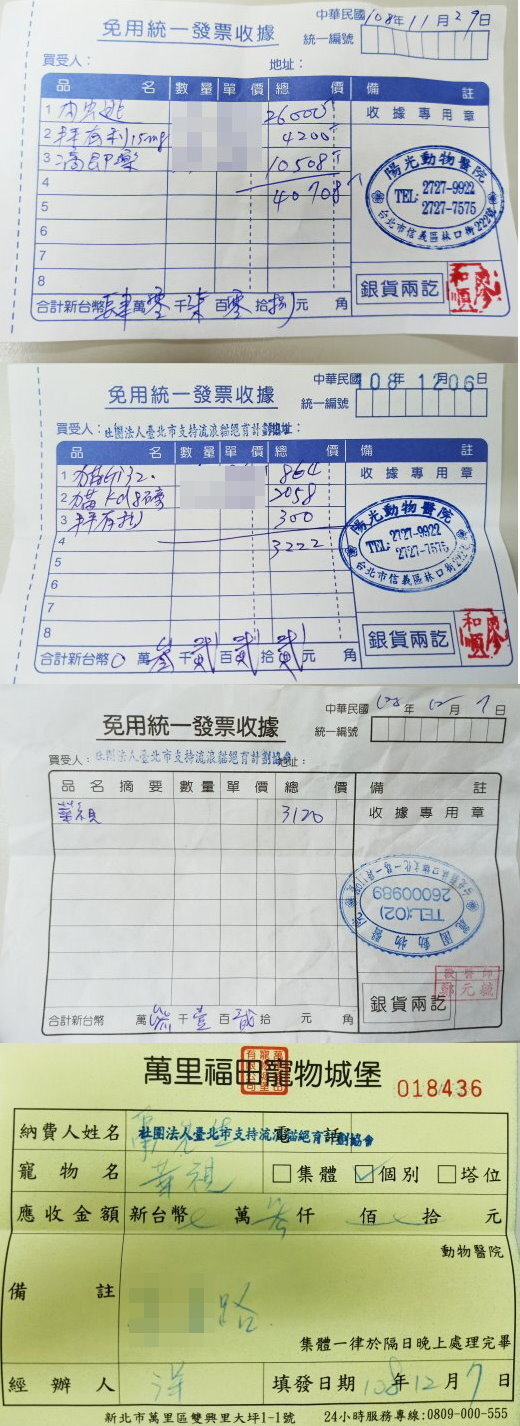 免用統一發票收據
中華民國108年11月29日
統一編號
買受人： 地址：
品名 數量 單價 總價 備註
1 26000
收據專用章
2 15mg 4200
3 10508
4 40708
5
6
7
8
陽光動物醫院
TEL: 2727-9922
2727-7575
台北市信義區林口街222號
銀貨兩訖
合計新台幣 肆萬零千柒百零拾捌元 角
免用統一發票收據
中華民國108年12月06日
統一編號
買受人：社團法人臺北市支持流浪貓絕育計劃 地址：
品名 數量 單價 總價 備註
1 864
收據專用章
2 2058
3 300
4 3222
5
6
7
8
陽光動物醫院
TEL: 2727-9922
2727-7575
台北市信義區林口街222號
銀貨兩訖
和順
合計新台幣0萬參千貳百貳拾貳元 角
免用統一發票收據
中華民國108年12月7日
統一編號
買受人：社團法人臺北市支持流浪貓絕育計劃協會
品名摘要 數量 單價 總價 備註
華祺 3120
收據專用章
動物醫院
TEL:(02)
26000989
銀貨兩訖
獸醫師
鄭元毓
合計新台幣 萬參千壹百貳拾元 角
萬里福田寵物城堡
018436
納費人姓名 社團法人臺北市支持流浪貓絕育計劃協會 電話
寵物名 華祺 □集體 ☑個別 □塔位
應收金額 新台幣 萬 仟 佰 拾 元
動物醫院
備註 路
集體一律於隔日晚上處理完畢
經辦人 洋 填發日期 108年12月7日
新北市萬里區雙興里大坪1-1號 24小時服務專線:0809-000-555